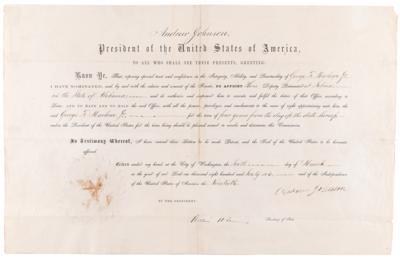 Andrew Johnson,
President of the United States of America,
TO ALL WHO SHALL SEE THESE PRESENTS, GREETING:
Know Ye, That, reposing special trust and confidence in the Integrity, Ability, and Punctuality of George
I HAVE NOMINATED, and by and with the advice and consent of the Senate, DO APPOINT Him Deputy Postmaster at Selma
in the State of Alabama and do authorize and empower him to execute and fulfil the duties of that Office according to
Law; AND TO HAVE AND TO HOLD the said Office, with all the powers, privileges, and emoluments to the same of right appertaining unto him, the
said George for the term of four years from the day of the date hereof,
the President of the United States for the time being should be pleased sooner to revoke and determine this Commission.
In Testimony Whereof, I have caused these Letters to be made Patent, and the Seal of the United States to be hereunto
affixed.
Given under my hand at the City of Washington, the day of March
in the year of our Lord one thousand eight hundred and sixty six and of the Independence
of the United States of America the Ninetieth.
Andrew Johnson
BY THE PRESIDENT:
Secretary of State.